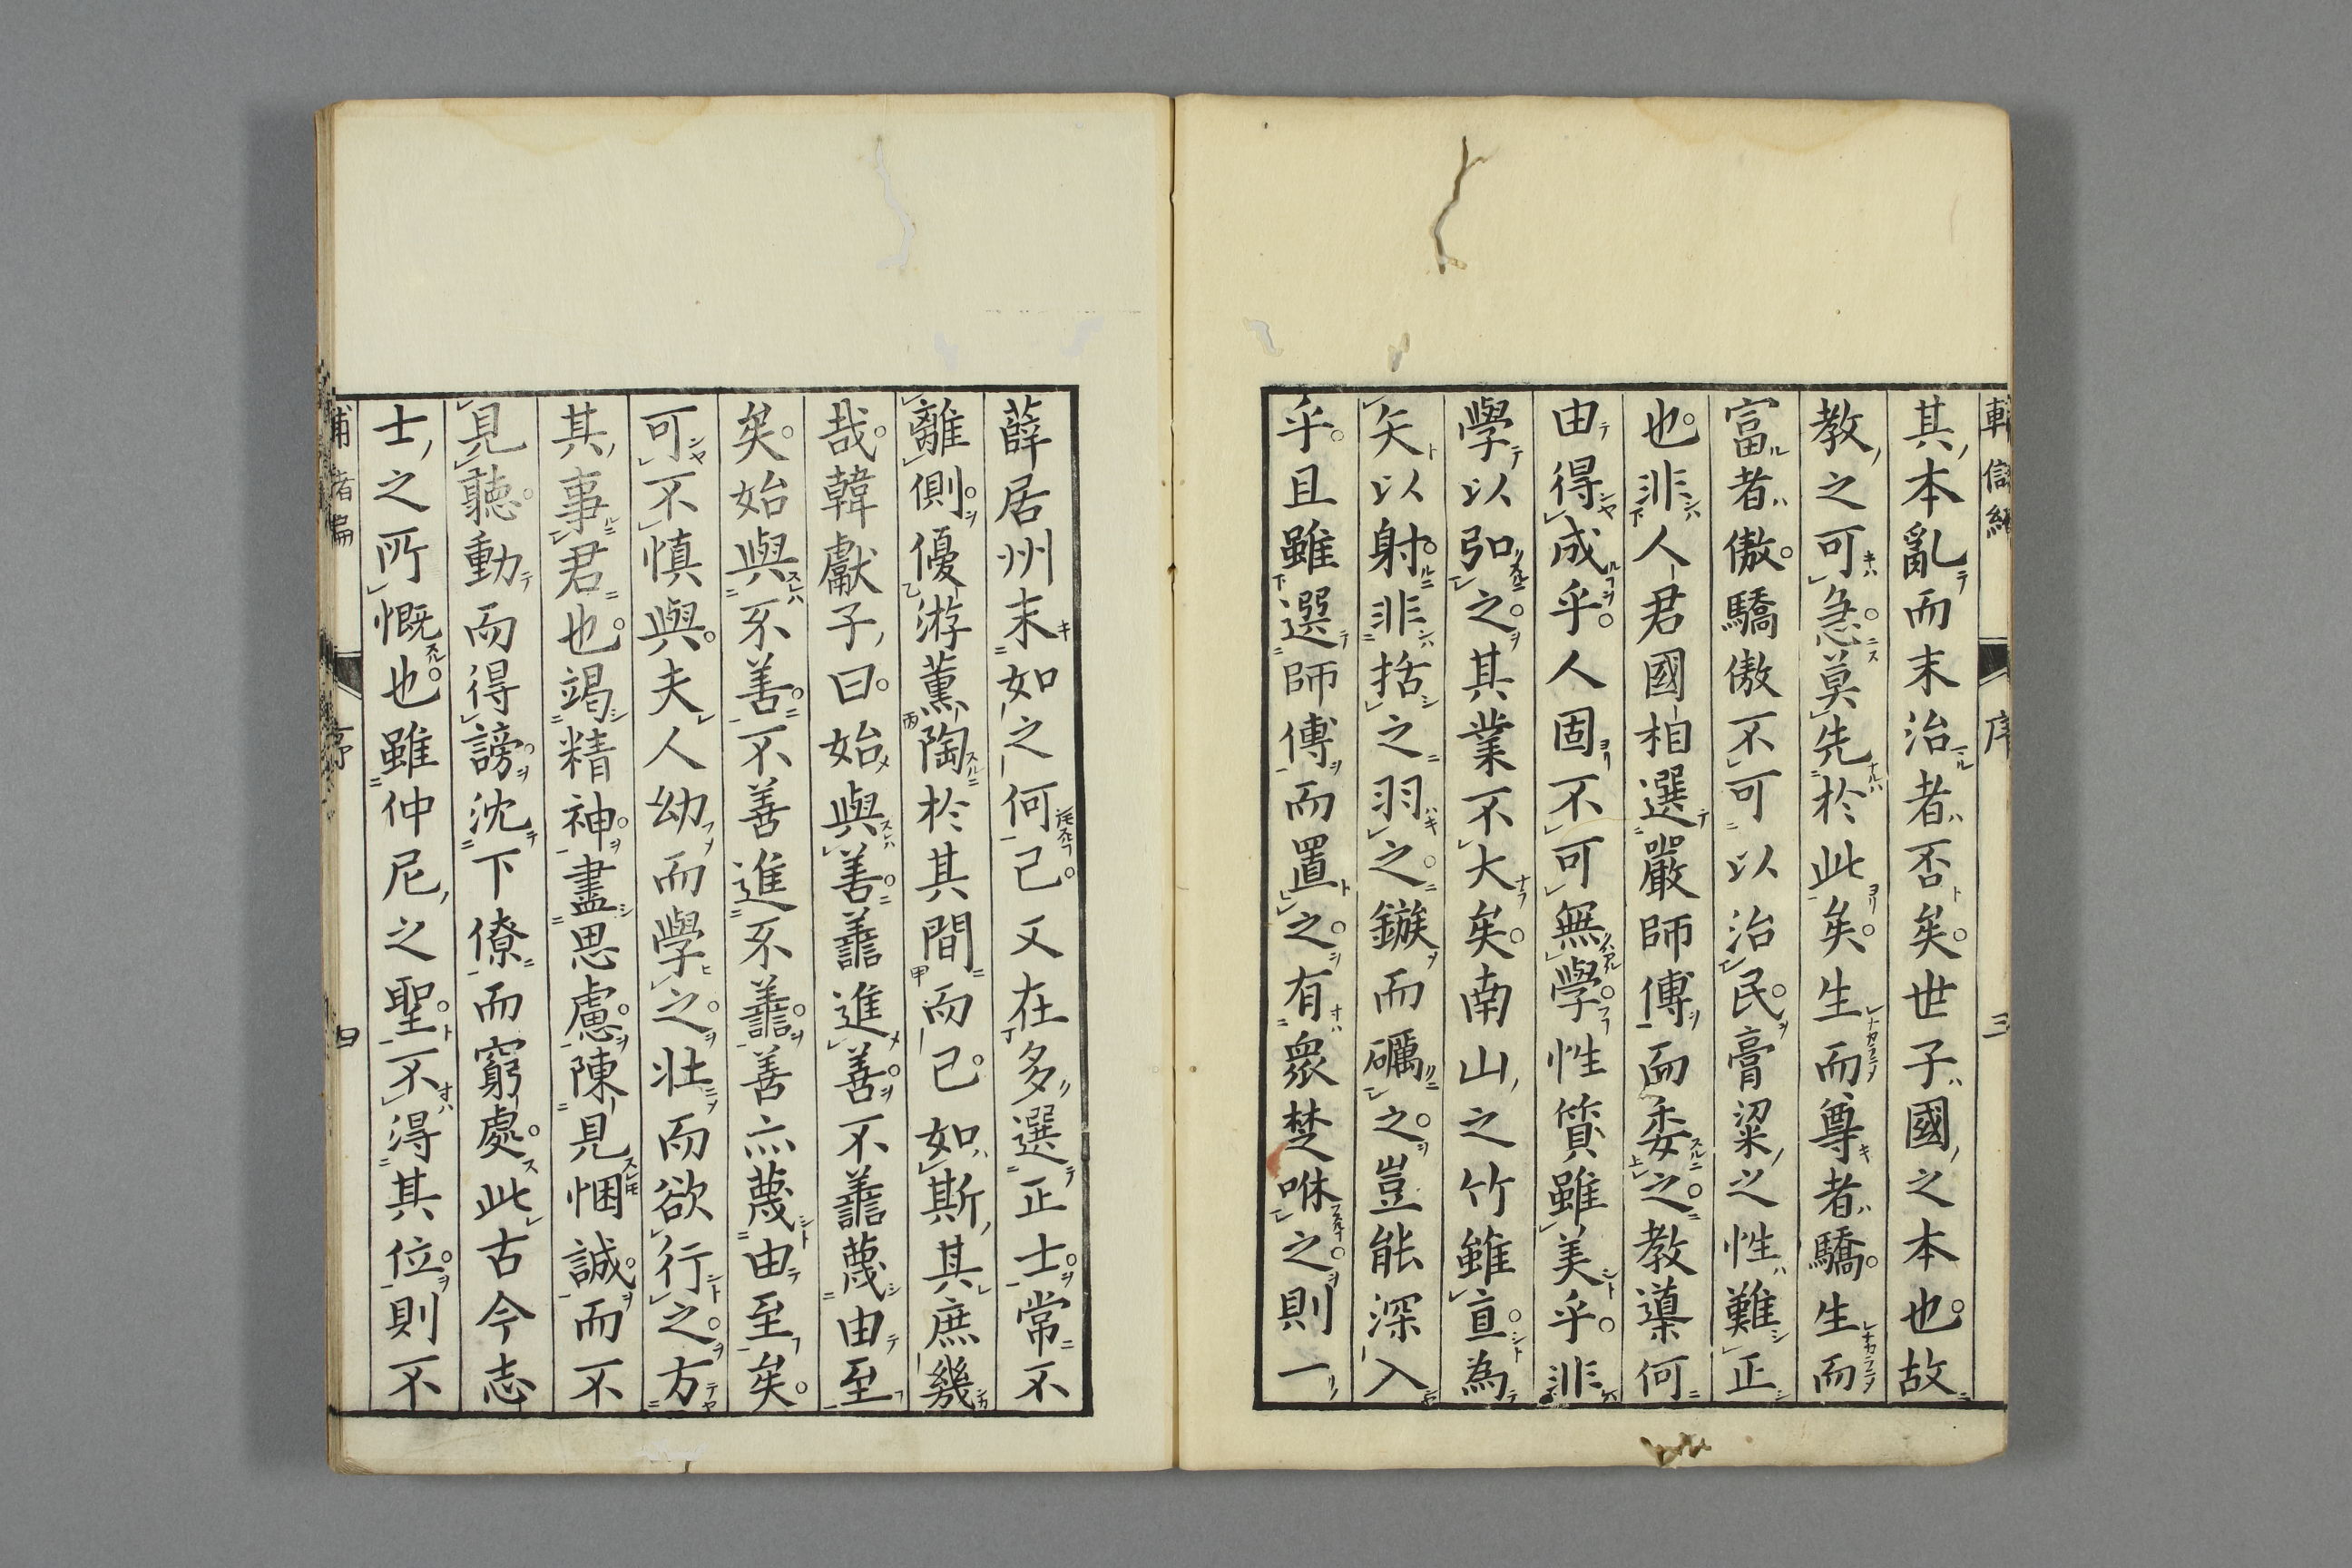 其本亂而末治者否矣世子國之本也故
教之可急莫先於此矣生而尊者驕生而
富者傲驕傲不可以治民膏粱之性難正
也非人君國相選嚴師傅而委之教導何
由得成乎人固不可無學性質雖美乎非
學以弘之其業不大矣南山之竹雖直為
矢以射非括之羽之鏃而礪之豈能深入
乎且雖選師傅而置之有衆楚咻之則一
序
三
薛居州末如之何已又在多選正士常不
離側優游薰陶於其間而已如斯其庶幾
哉韓獻子曰始與善譱進善不譱蔑由至
矣始與不善不善進不譱善亦蔑由至矣
可不慎與夫人幼而學之壯而欲行之方
其事君也竭精神盡思慮陳見悃誠而不
見聽動而得謗沈下僚而窮處此古今志
士之所慨也雖仲尼之聖不得其位則不